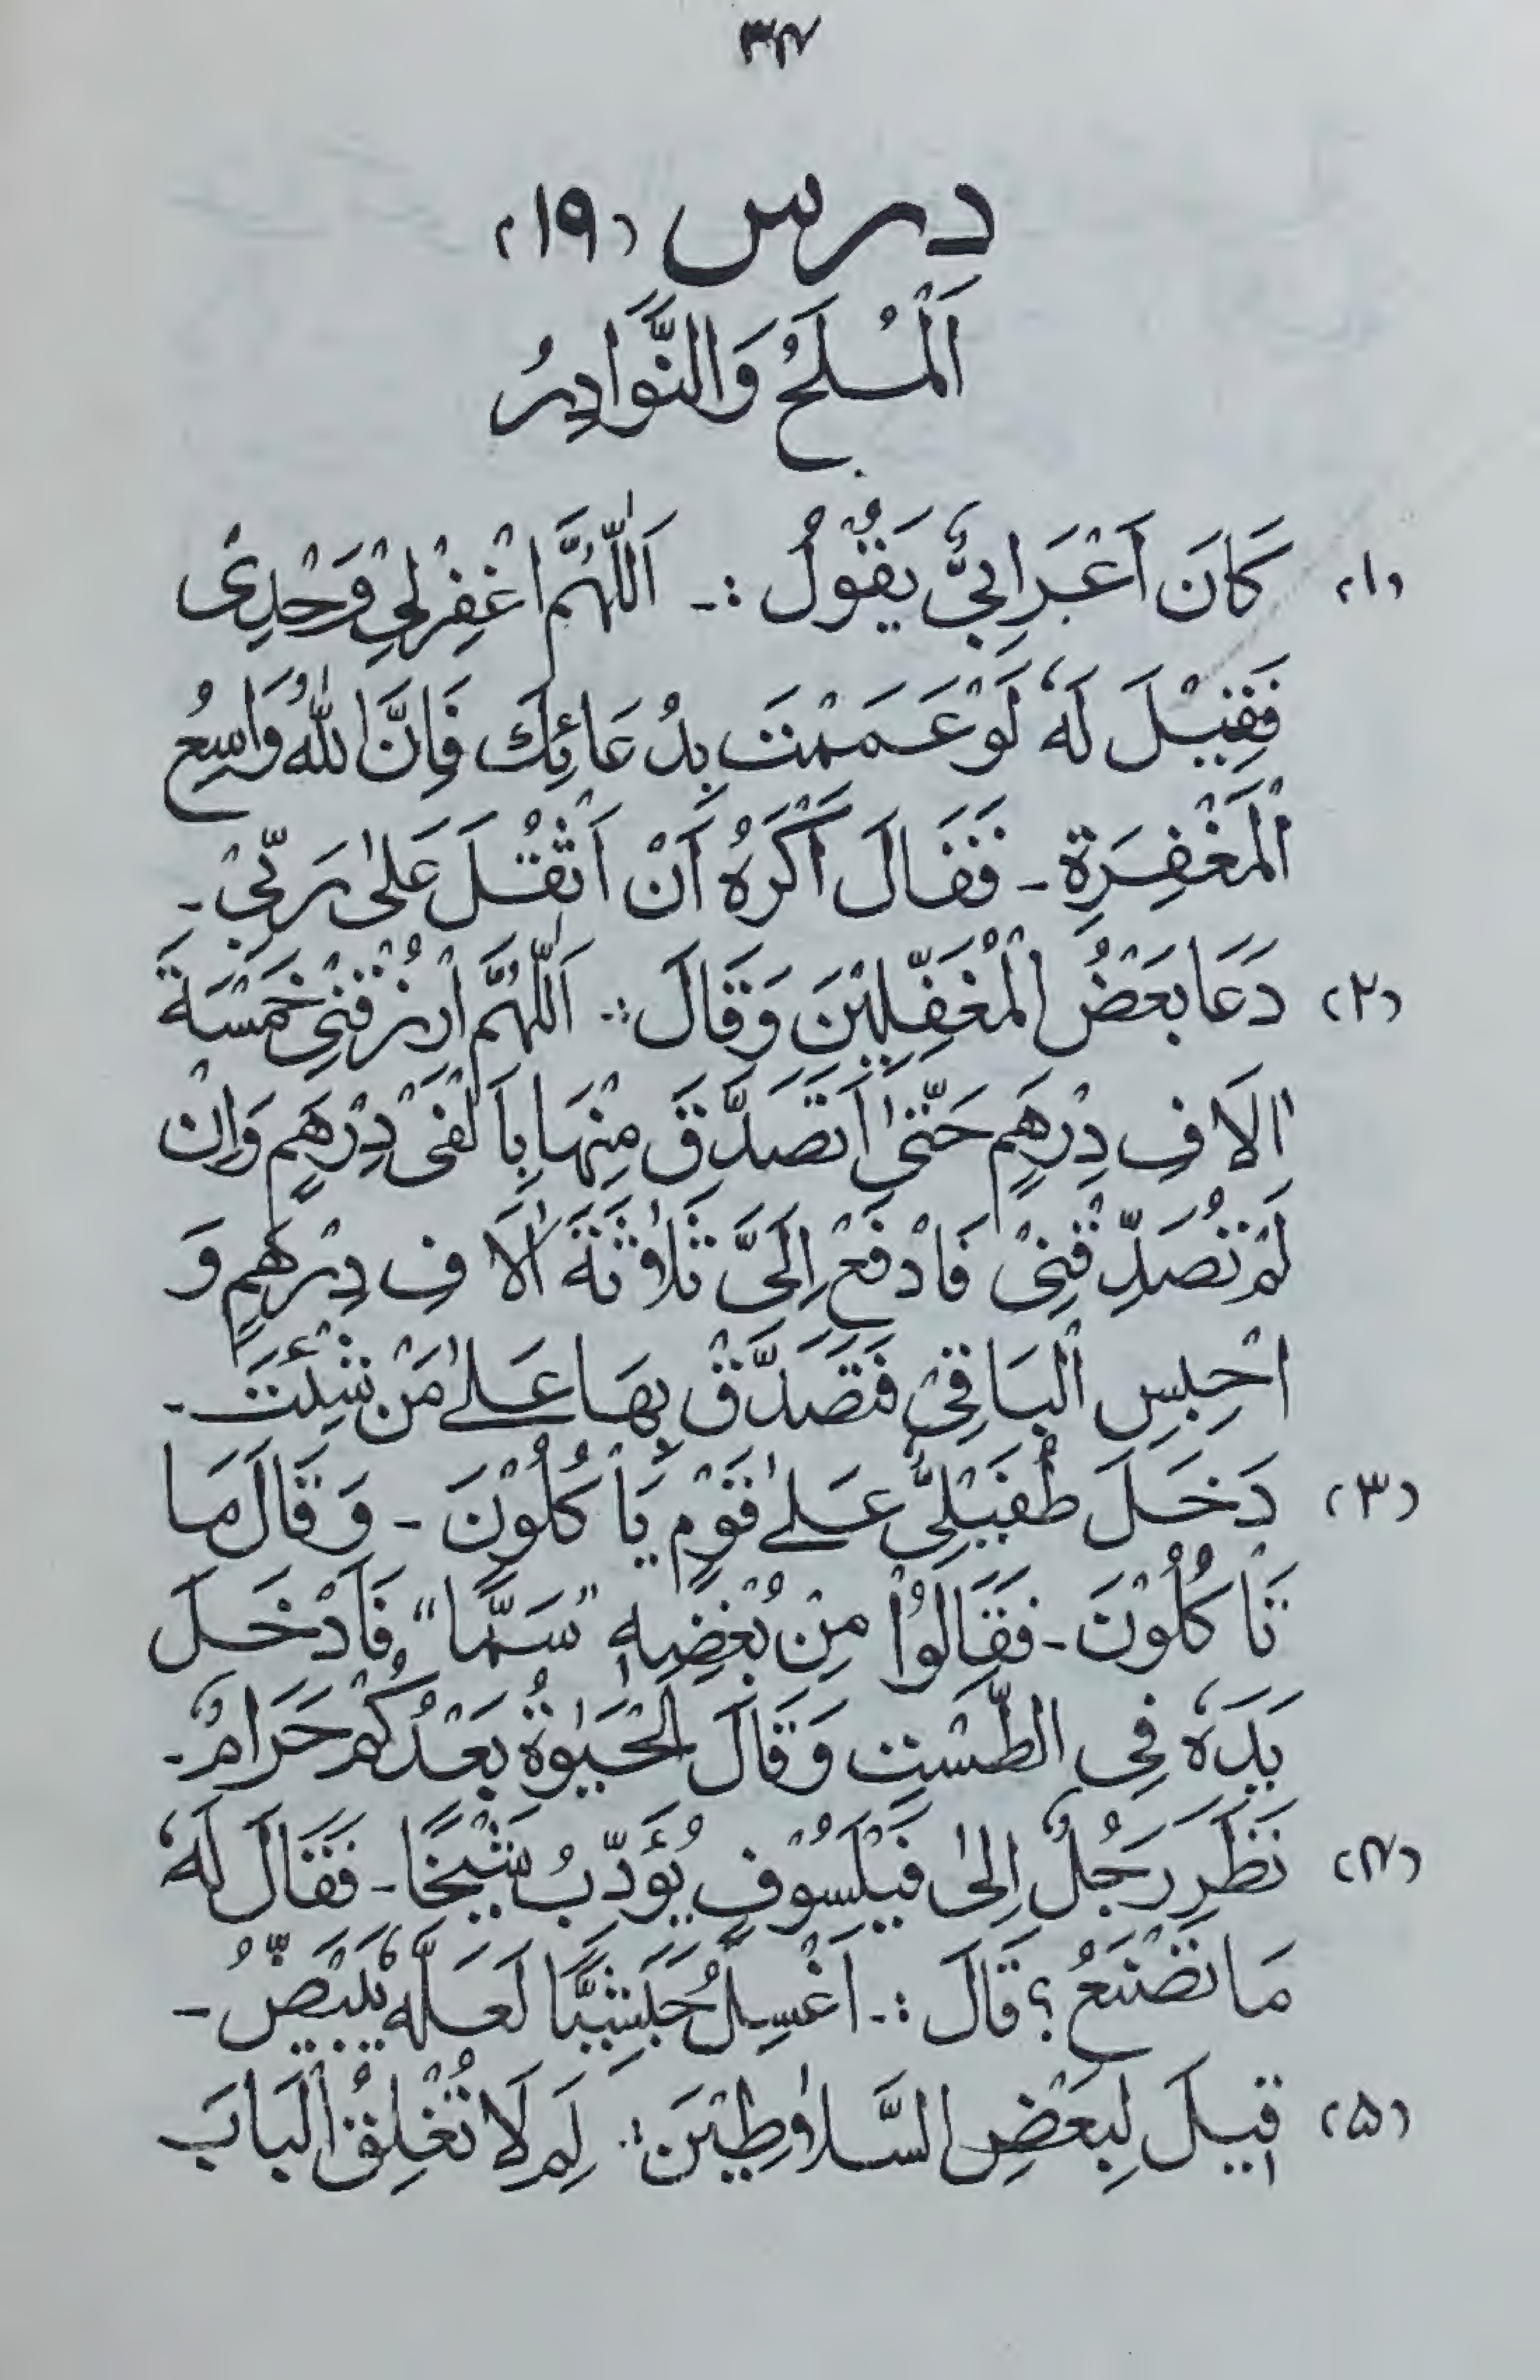 ۳۴
درس (۱۹)
اَلْمُلَحُ وَالنَّوَادِرُ
(۱) كَانَ اَعْرَابِيٌّ يَقُوْلُ :۔ اَللّٰهُمَّ اغْفِرْلِيْ وَحْدِىْ
فَقِيْلَ لَهٗ لَوْ عَمَمْتَ بِدُعَائِكَ فَاِنَّ اللّٰهَ وَاسِعُ
الْمَغْفِرَةِ ۔ فَقَالَ اَكْرَهُ اَنْ اَثْقُلَ عَلٰى رَبِّيْ ۔
(۲) دَعَا بَعْضُ الْمُغَفَّلِيْنَ وَقَالَ :۔ اَللّٰهُمَّ ارْزُقْنِيْ خَمْسَةَ
اٰلَافِ دِرْهَمٍ حَتّٰى اَتَصَدَّقَ مِنْهَا بِاَلْفَىْ دِرْهَمٍ وَاِنْ
لَمْ تُصَدِّقْنِىْ فَادْفَعْ اِلَىَّ ثَلٰثَةَ اٰلَافِ دِرْهَمٍ وَ
احْبِسِ الْبَاقِىَ فَتَصَدَّقْ بِهَا عَلٰى مَنْ شِئْتَ ۔
(۳) دَخَلَ طُفَيْلِىٌّ عَلٰى قَوْمٍ يَأْكُلُوْنَ ۔ وَقَالَ مَا
تَاْكُلُوْنَ ۔ فَقَالُوْا مِنْ بُغْضِهٖ "سَمًّا" فَاَدْخَلَ
يَدَهٗ فِى الطَّسْتِ وَقَالَ الْحَيٰوةُ بَعْدَكُمْ حَرَامٌ ۔
(۴) نَظَرَ رَجُلٌ اِلٰى فَيْلَسُوْفٍ يُؤَدِّبُ شَيْخًا ۔ فَقَالَ لَهٗ
مَا تَصْنَعُ ؟ قَالَ :۔ اَغْسِلُ حَبَشِيًّا لَعَلَّهٗ يَبْيَضُّ ۔
(۵) قِيْلَ لِبَعْضِ السَّلَاطِيْنَ :۔ لِمَ لَا تُغْلِقُ الْبَابَ